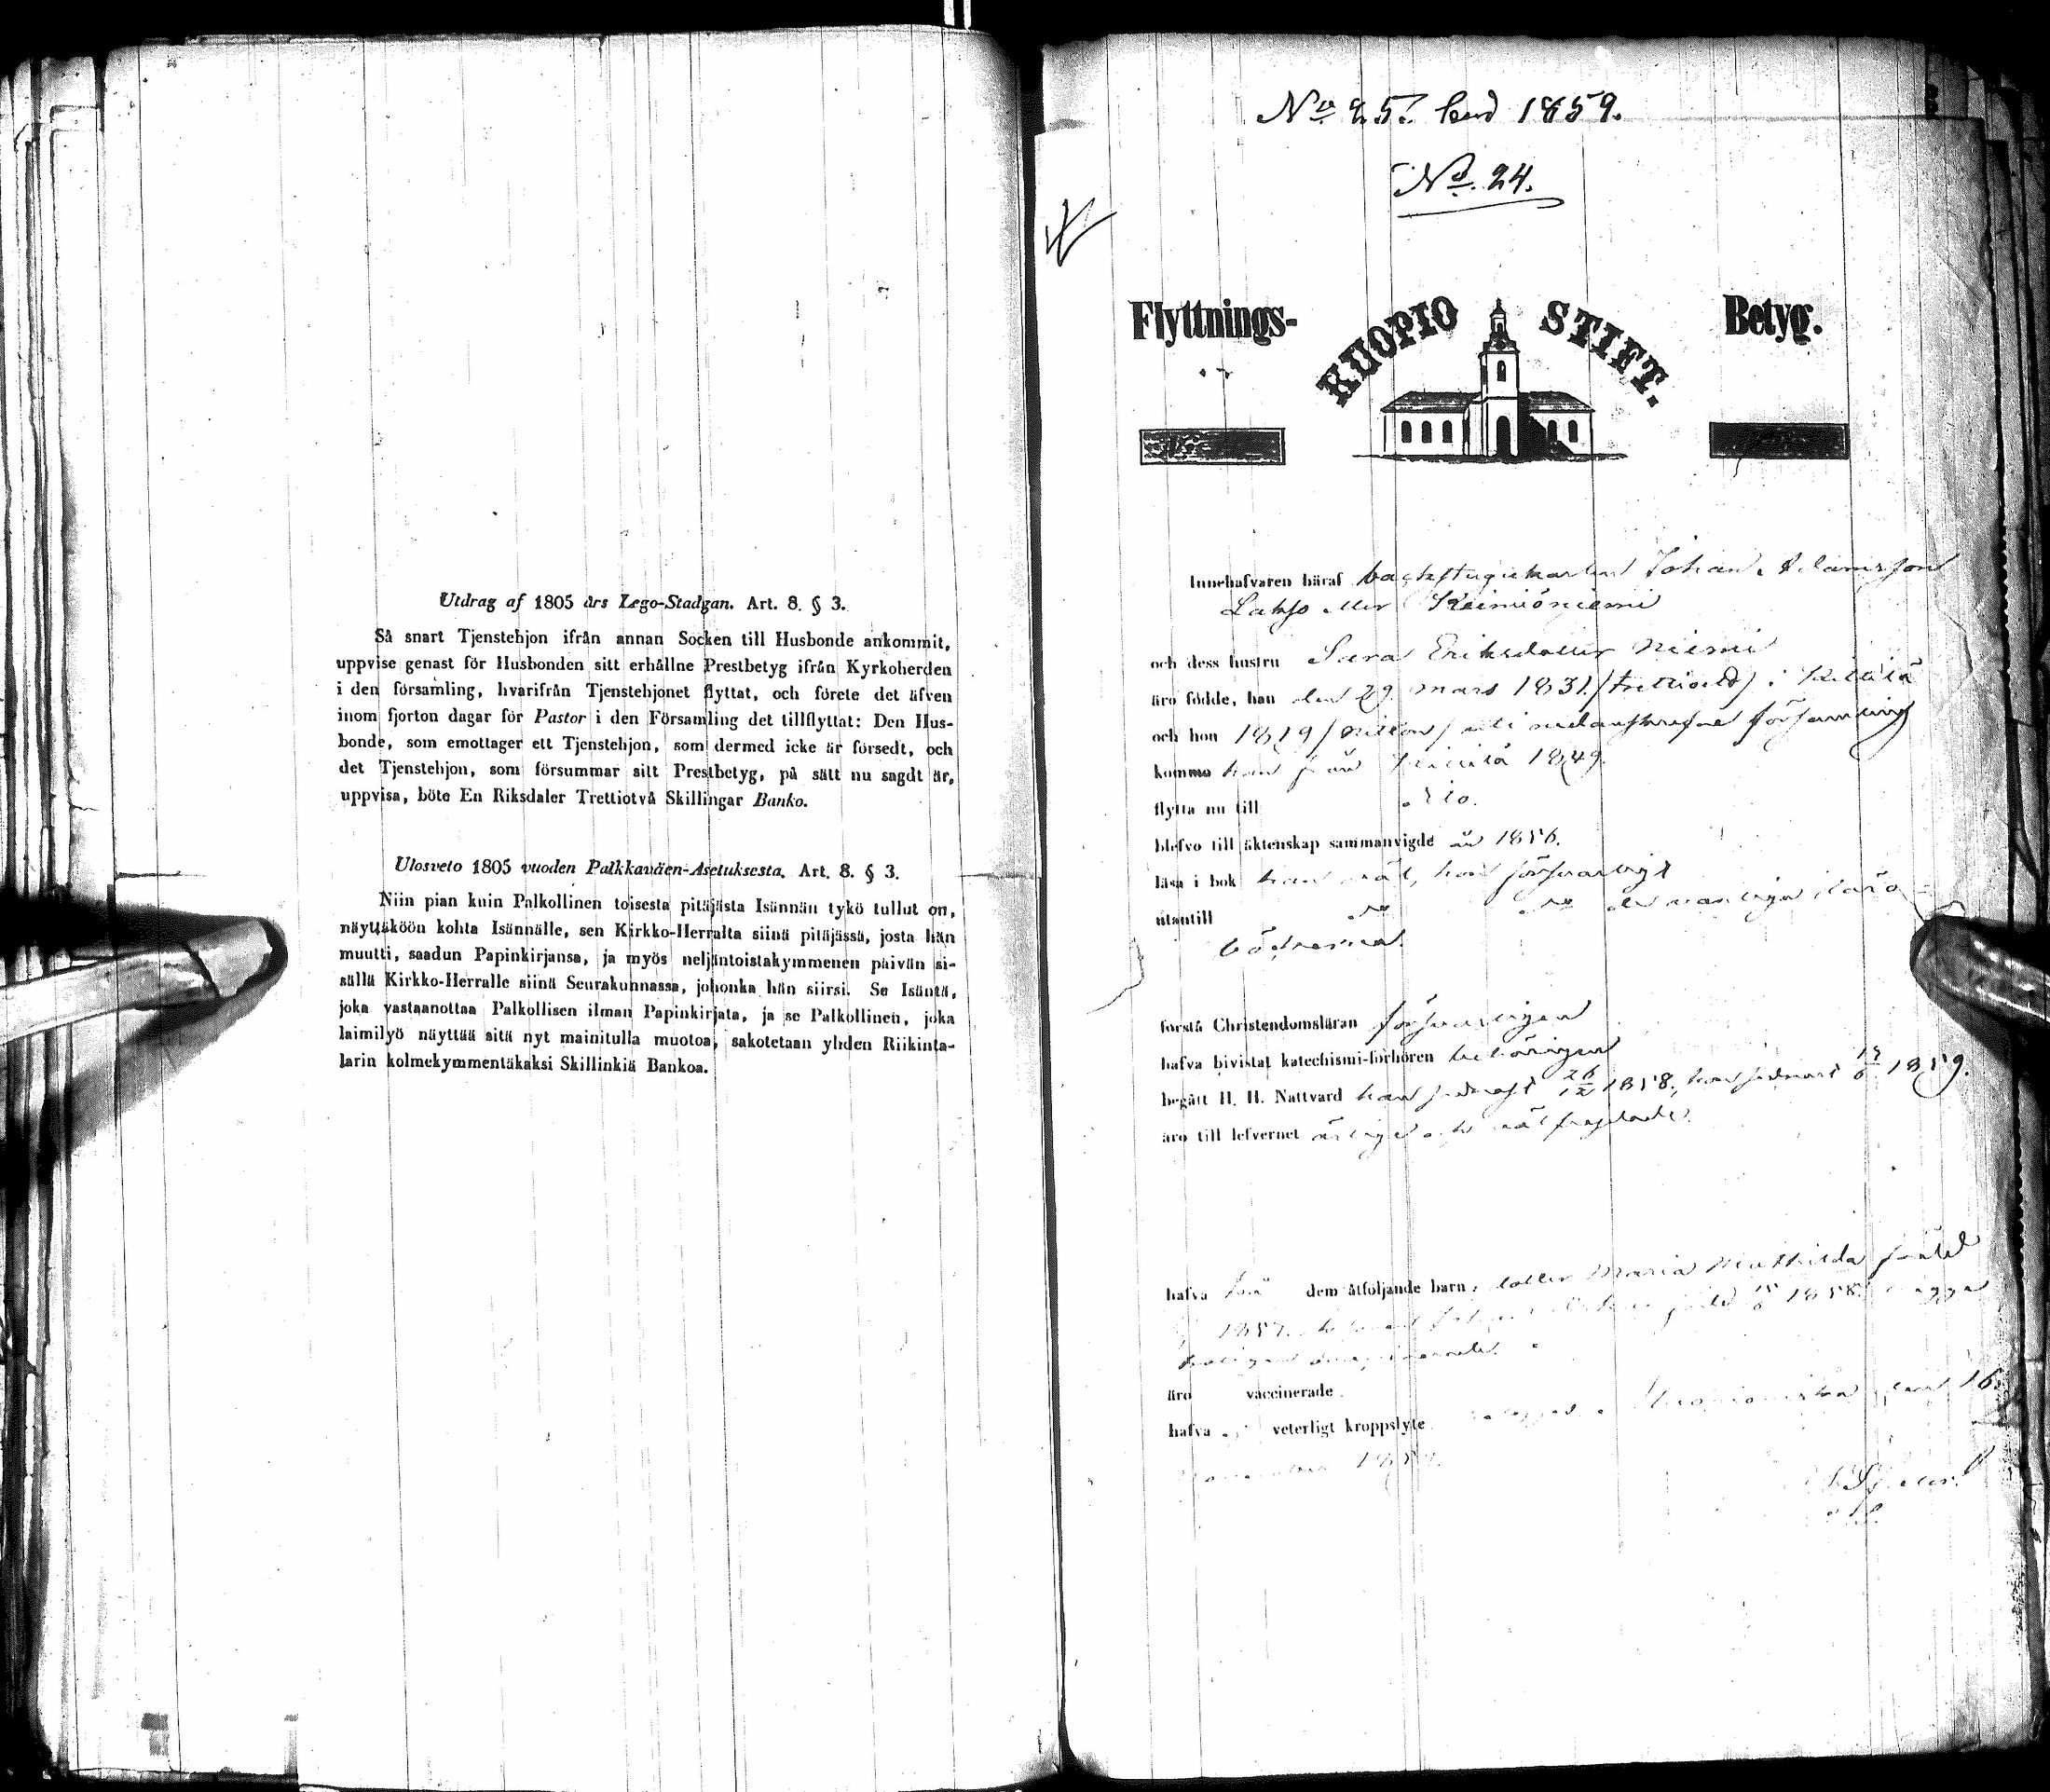 Utdrag af 1805 års Lego-Stadgan. Art. 8. § 3.
Så snart Tjenstehjon ifrån annan Socken till Husbonde ankommit,
uppvise genast för Husbonden sitt erhållne Prestbetyg ifrån Kyrkoherden
i den församling, hvarifrån Tjenstehjonet flyttat, och förete det äfven
inom fjorton dagar för Pastor i den Församling det tillflyttat: Den Hus-
bonde, som emottager ett Tjenstehjon, som dermed icke är försedt, och
det Tjenstehjon, som försummar sitt Prestbetyg, på sätt nu sagdt är,
uppvisa, böte En Riksdaler Trettiotvå Skillingar Banko.
Ulosveto 1805 vuoden Palkkaväen-Asetuksesta. Art. 8. § 3.
Niin pian kuin Palkollinen toisesta pitäjästä Isännän tykö tullut on,
näyttäköön kohta Isännälle, sen Kirkko-Herralta siinä pitäjässä, josta hän
muutti, saadun Papinkirjansa, ja myös neljäntoistakymmenen päivän si-
sällä Kirkko-Herralle siinä Seurakunnassa, johonka hän siirsi. Se Isäntä,
joka vastaanottaa Palkollisen ilman Papinkirjata, ja se Palkollinen, joka
laimilyö näyttää sitä nyt mainitulla muotoa, sakotetaan yhden Riikinta-
larin kolmekymmentäkaksi Skillinkiä Bankoa.
1859.
No. 24.
Flyttnings- KUOPIO STIFT. Betyg.
Innehafvaren häraf backstugukarlen Johan Adamsson
Lakso eller Keimiöniemi
och dess hustru Sara Eriksdotter Niemi
äro födde, han den 29 mars 1831 i Kittilä
och hon 1819 församling
komme han från Kittilä 1849.
flytta nu till
blefvo till äktenskap sammanvigde år 1856.
läsa i bok han väl, hon försvarligt
utantill do do
böckerna.
förstå Christendomsläran försvarligen
hafva bivistat katechismi-förhören behörigen
begått H. H. Nattvard han sednast 26/12 1858, hon sednast 1859.
äro till lefvernet ärliga och välfrejdade.
hafva två dem åtföljande barn: dotter Maria Mathilda född
1857. född 1858.
äro vaccinerade
hafva veterligt kroppslyte